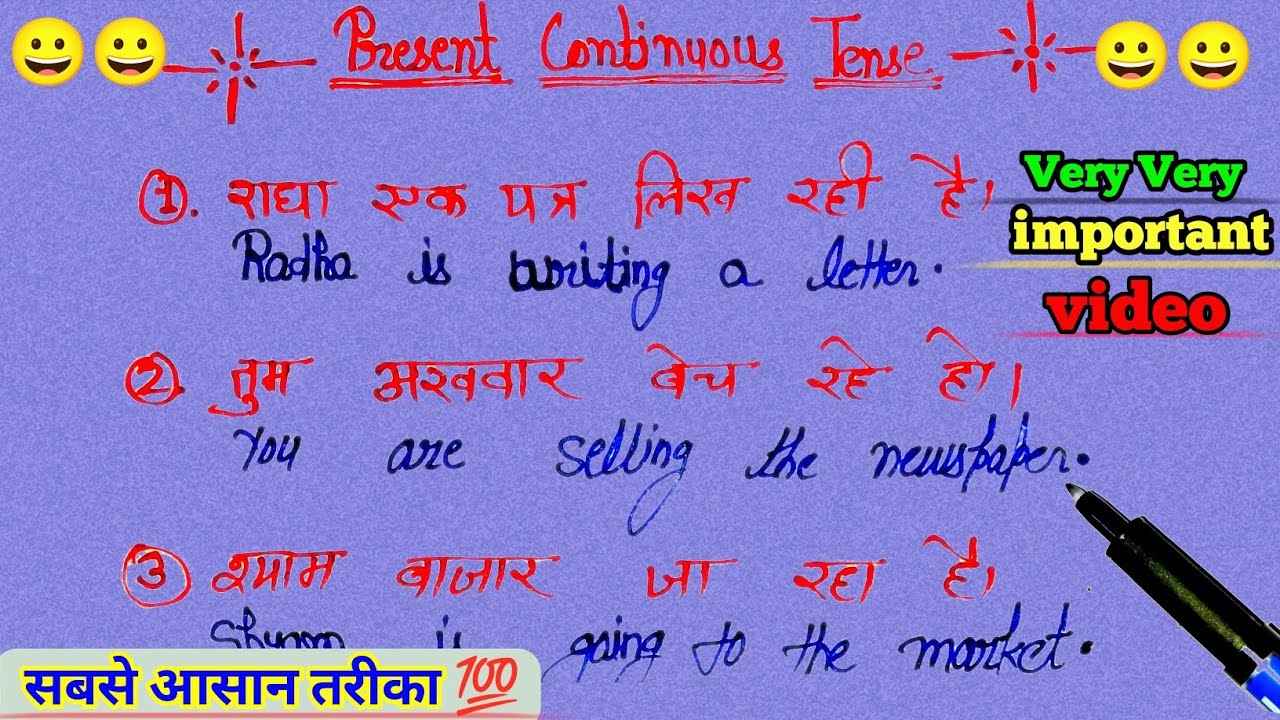 Present Continuous Tense
①. राधा एक पत्र लिख रही है।
Radha is writing a letter.
Very Very
important
video
②. तुम अखवार बेच रहे हो।
You are selling the newspaper.
③ श्याम बाजार जा रहा है।
Shyam is going to the market.
सबसे आसान तरीका 100